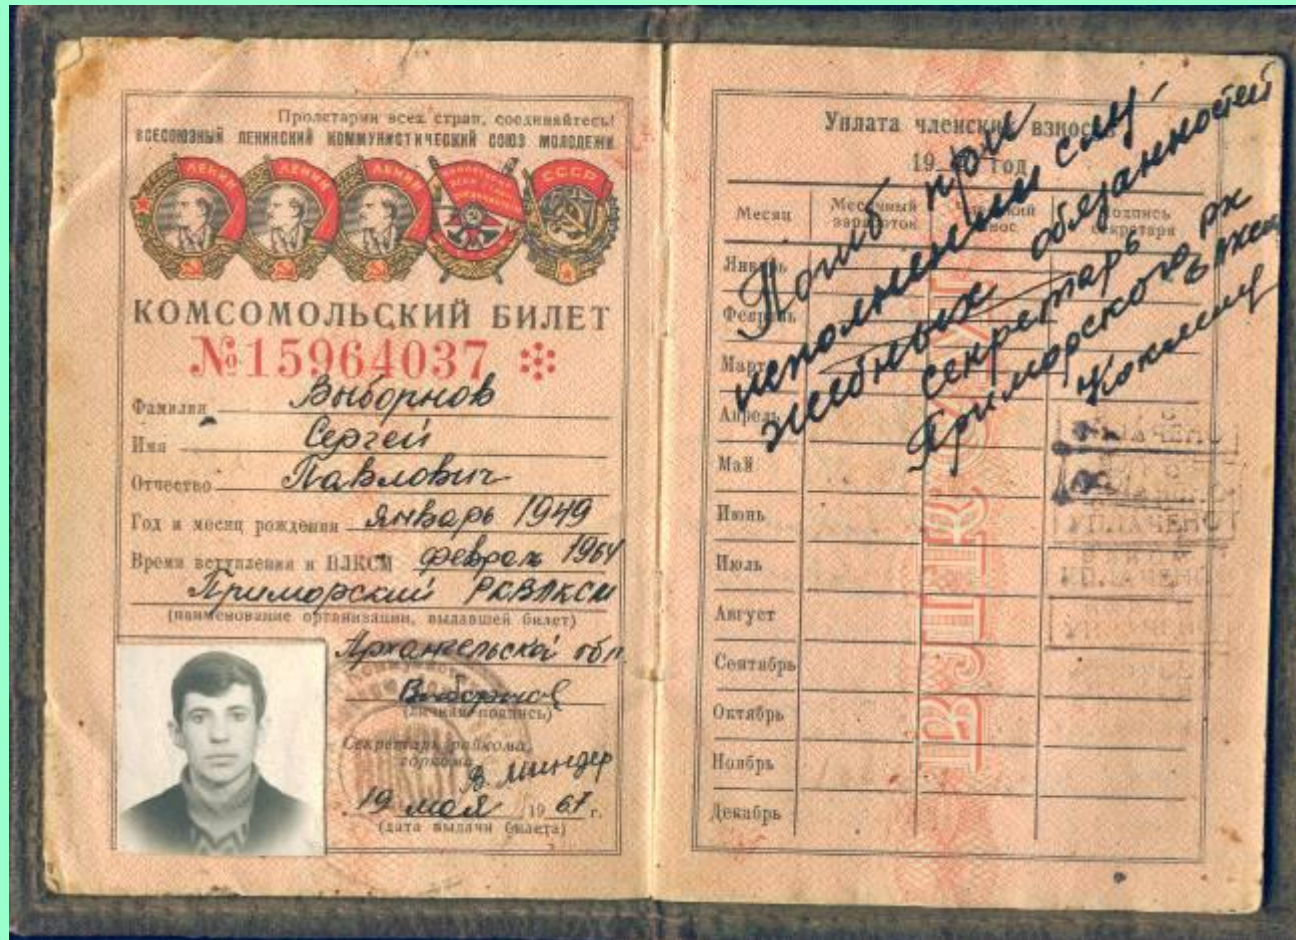 Пролетарии всех стран, соединяйтесь!
ВСЕСОЮЗНЫЙ ЛЕНИНСКИЙ КОММУНИСТИЧЕСКИЙ СОЮЗ МОЛОДЕЖИ
ЛЕНИН ЛЕНИН ЛЕНИН СССР
КОМСОМОЛЬСКИЙ БИЛЕТ
№15964037
Фамилия Выборнов
Имя Сергей
Отчество Павлович
Год и месяц рождения январь 1949
Время вступления в ВЛКСМ февраль 1964
Приморский РКВЛКСМ
(наименование организации, выдавшей билет)
Архангельской обл.
Выборнов
(личная подпись)
Секретарь райкома,
горкома
19 мая 1967 г.
(дата выдачи билета)
Уплата членских взносов
19 год
Месяц Месячный заработок Членский взнос Подпись секретаря
Январь
Февраль
Март
Апрель
Май
Июнь
Июль
Август
Сентябрь
Октябрь
Ноябрь
Декабрь
Погиб при
исполнении слу-
жебных обязанностей
секретарь РК
Приморского ВЛКСМ
ВЛКСМ
УПЛАЧЕНО
УПЛАЧЕНО
УПЛАЧЕНО
УПЛАЧЕНО